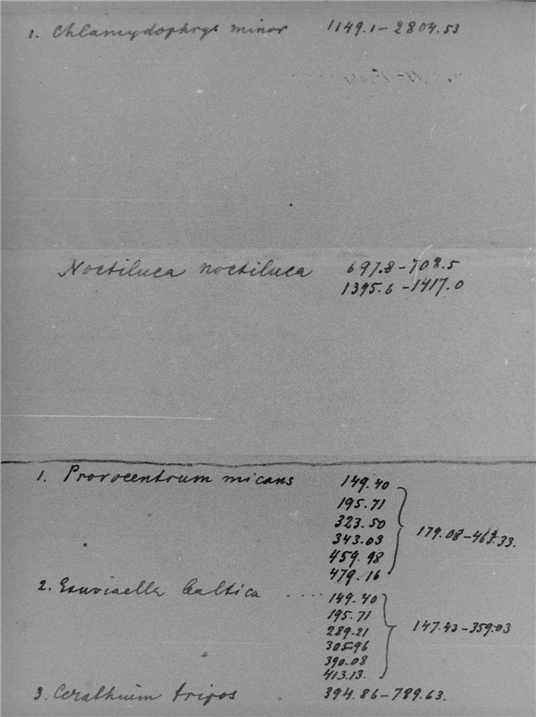 1. Chlamydophrys minor 1149.1 – 2804.53
Noctiluca noctiluca 697.8 – 708.5
1395.6 – 1417.0
1. Prorocentrum micans 149.40
195.71
323.50
343.03 179.08 – 463.33.
459.98
479.16
2. Exuviaella baltica .... 149.40
195.71
289.21 147.43 – 359.03
305.96
390.08
413.13.
3. Cerathium tripos 394.86 – 789.63.